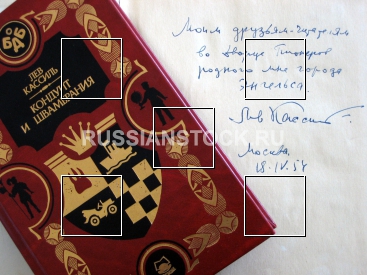 ББ
ЛЕВ
КАССИЛЬ
КОНДУИТ
И ШВАМБРАНИЯ
Моим друзьям-читателям
во дворце Пионеров
родного мне города
Энгельса.
Лев Кассиль
Москва,
RUSSIANSTOCK.RU